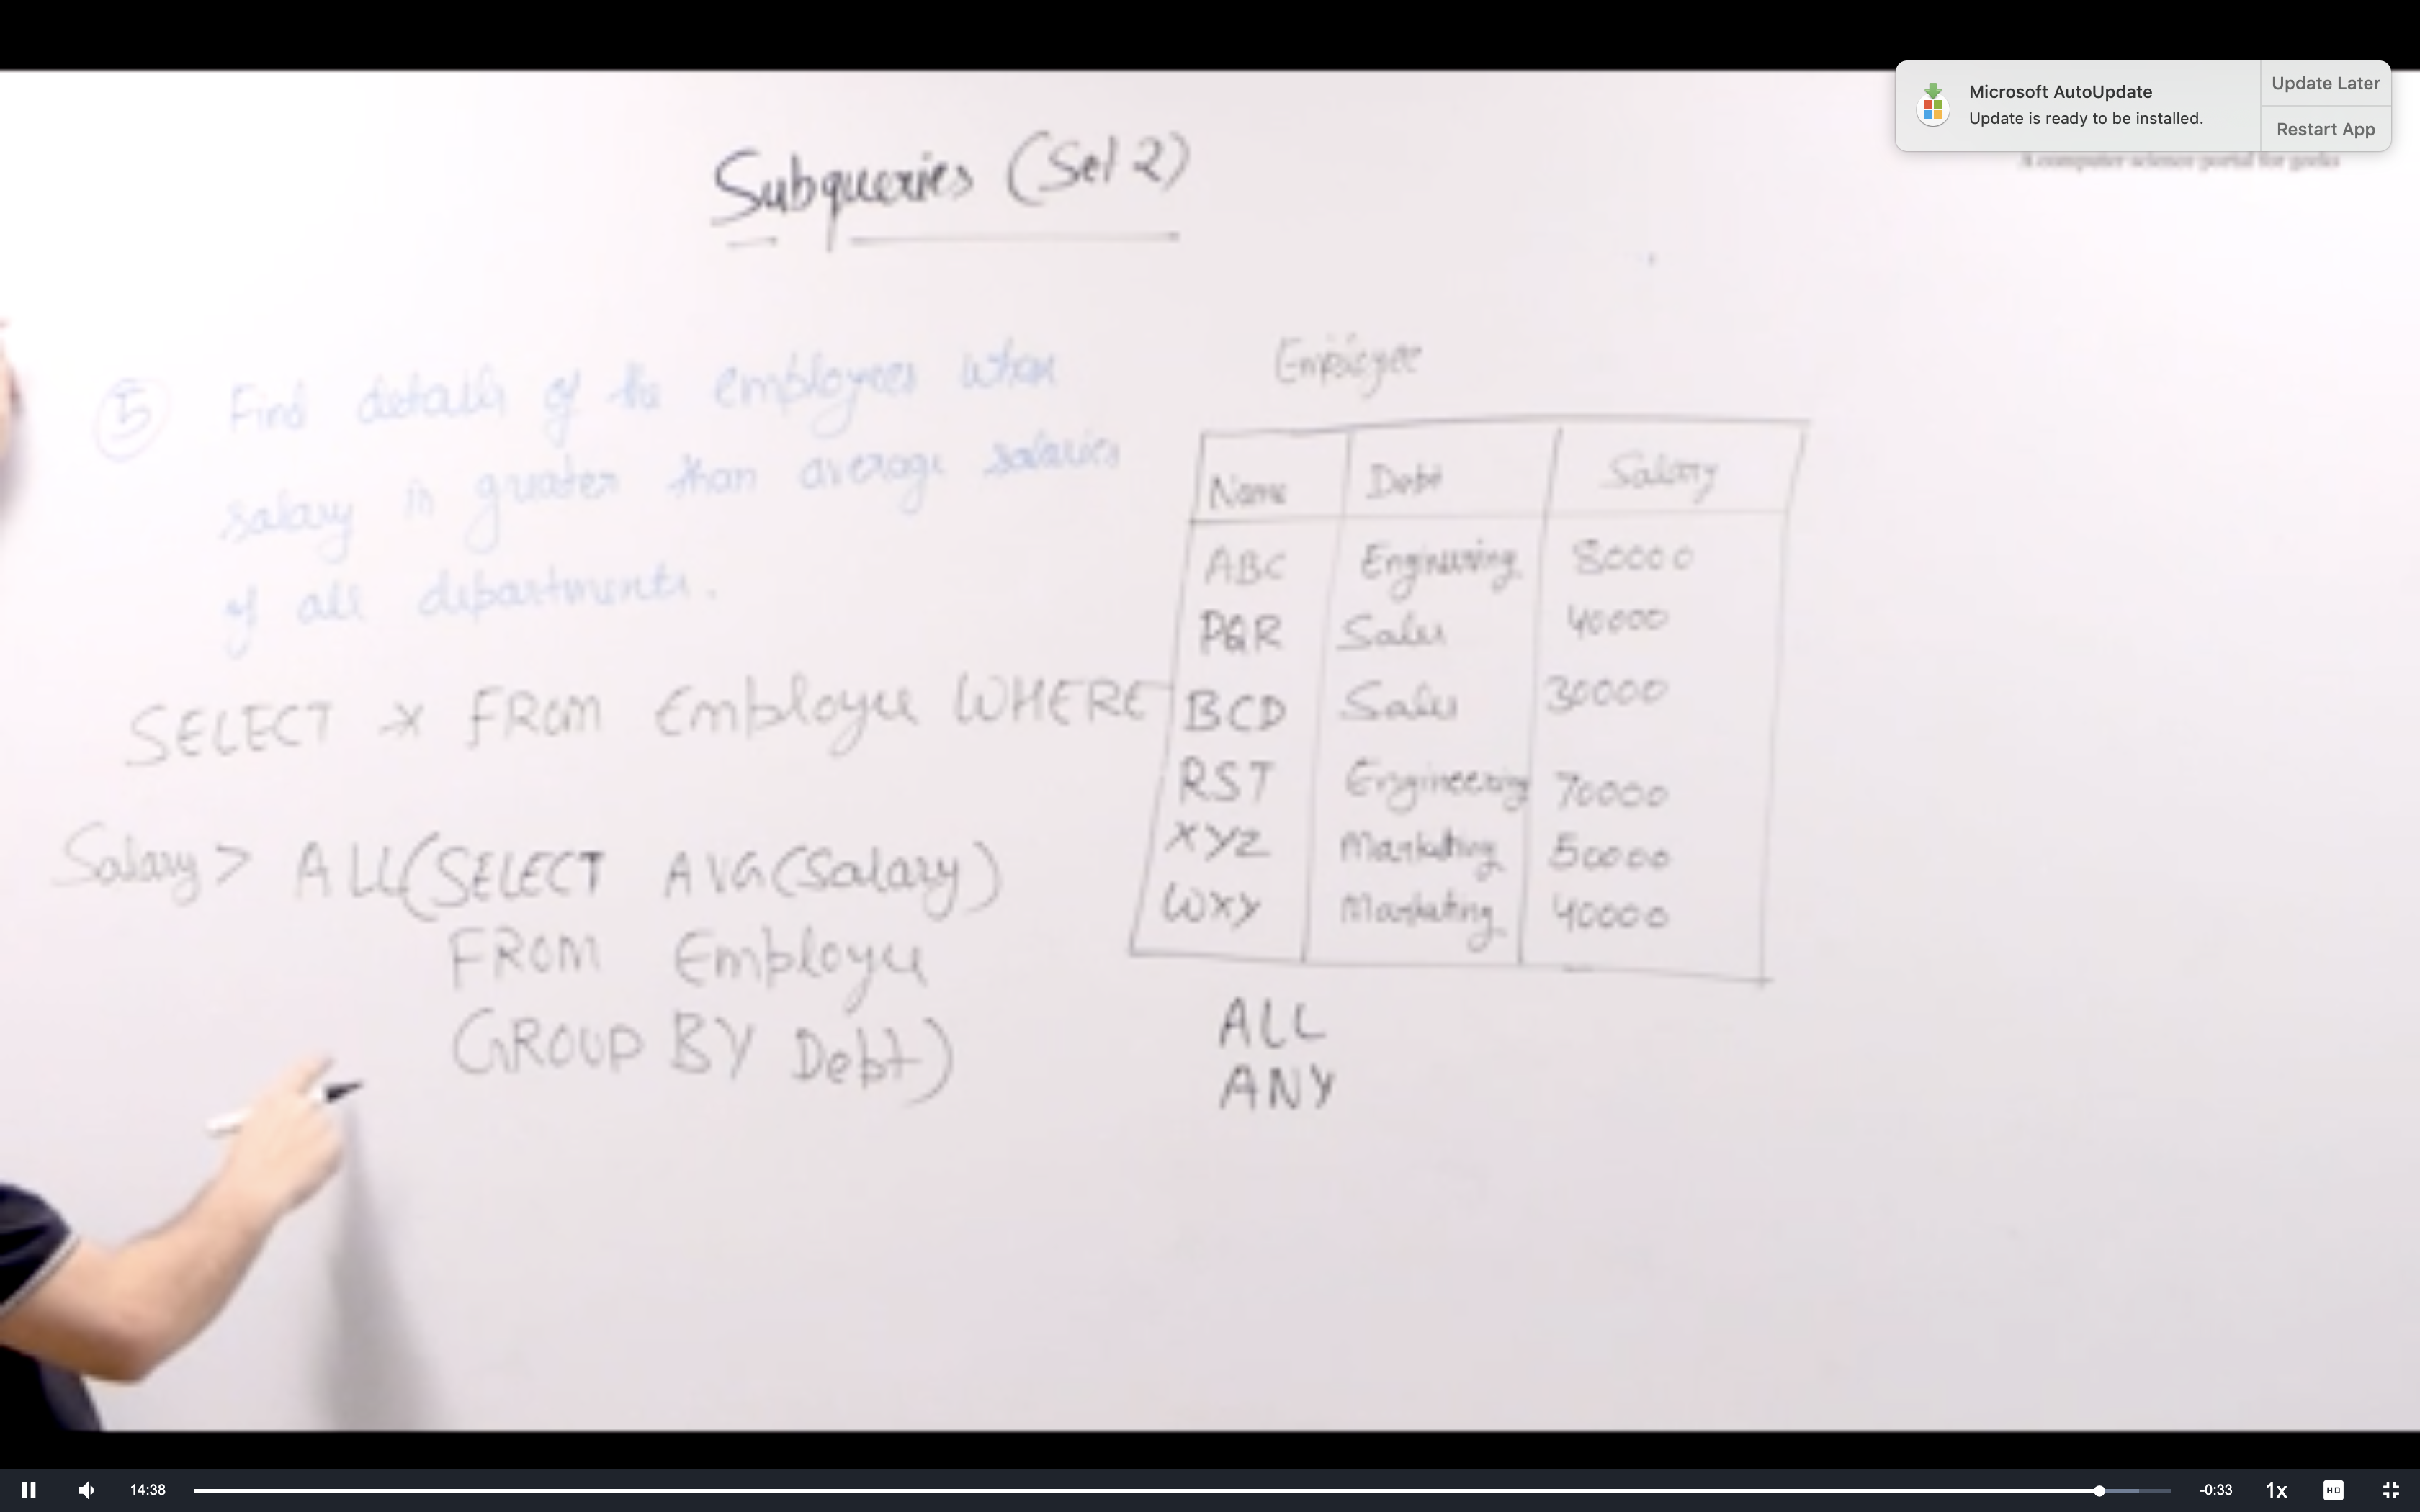 Microsoft AutoUpdate
Update is ready to be installed.
Update Later
Restart App
A computer science portal for geeks
Subqueries (Set 2)
5 Find details of the employees whose
salary is greater than average salaries
of all departments.
SELECT * FROM Employee WHERE
Salary > ALL(SELECT AVG(Salary)
FROM Employee
GROUP BY Dept)
Employee
Name Dept Salary
ABC Engineering 80000
PQR Sales 40000
BCD Sales 30000
RST Engineering 70000
XYZ Marketing 50000
WXY Marketing 40000
ALL
ANY
14:38
-0:33
1x
HD